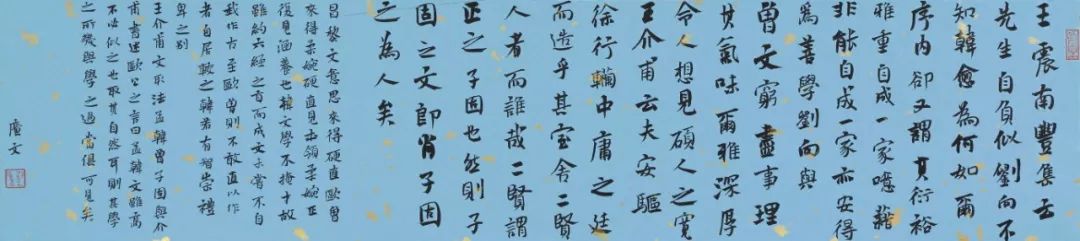 王震南豐集云
先生自負似劉向不
知韓愈為何如爾
序内卻又謂其衍裕
雅重自成一家噫藉
非能自成一家亦安得
為善學劉向與
曾文窮盡事理
其氣味爾雅深厚
令人想見碩人之寬
王介甫云夫安驅
徐行轥中庸之廷
而造乎其室舍二賢
人者而誰哉二賢謂
正之子固也然則子
固之文即肖子固
之為人矣
昌黎文意思來得硬直歐曾
來得柔婉硬直見本領柔婉正
復見涵養也韓文學不掩才故
雖約六經之旨而成文未嘗不自
我作古至歐曾則不敢直以作
者自居較之韓若有智崇禮
卑之別
王介甫文取法孟韓曾子固與介
甫書述歐公之言曰孟韓文雖高
不必似之也取其自然耳則其學
之所幾與學之過當俱可見矣
廣文